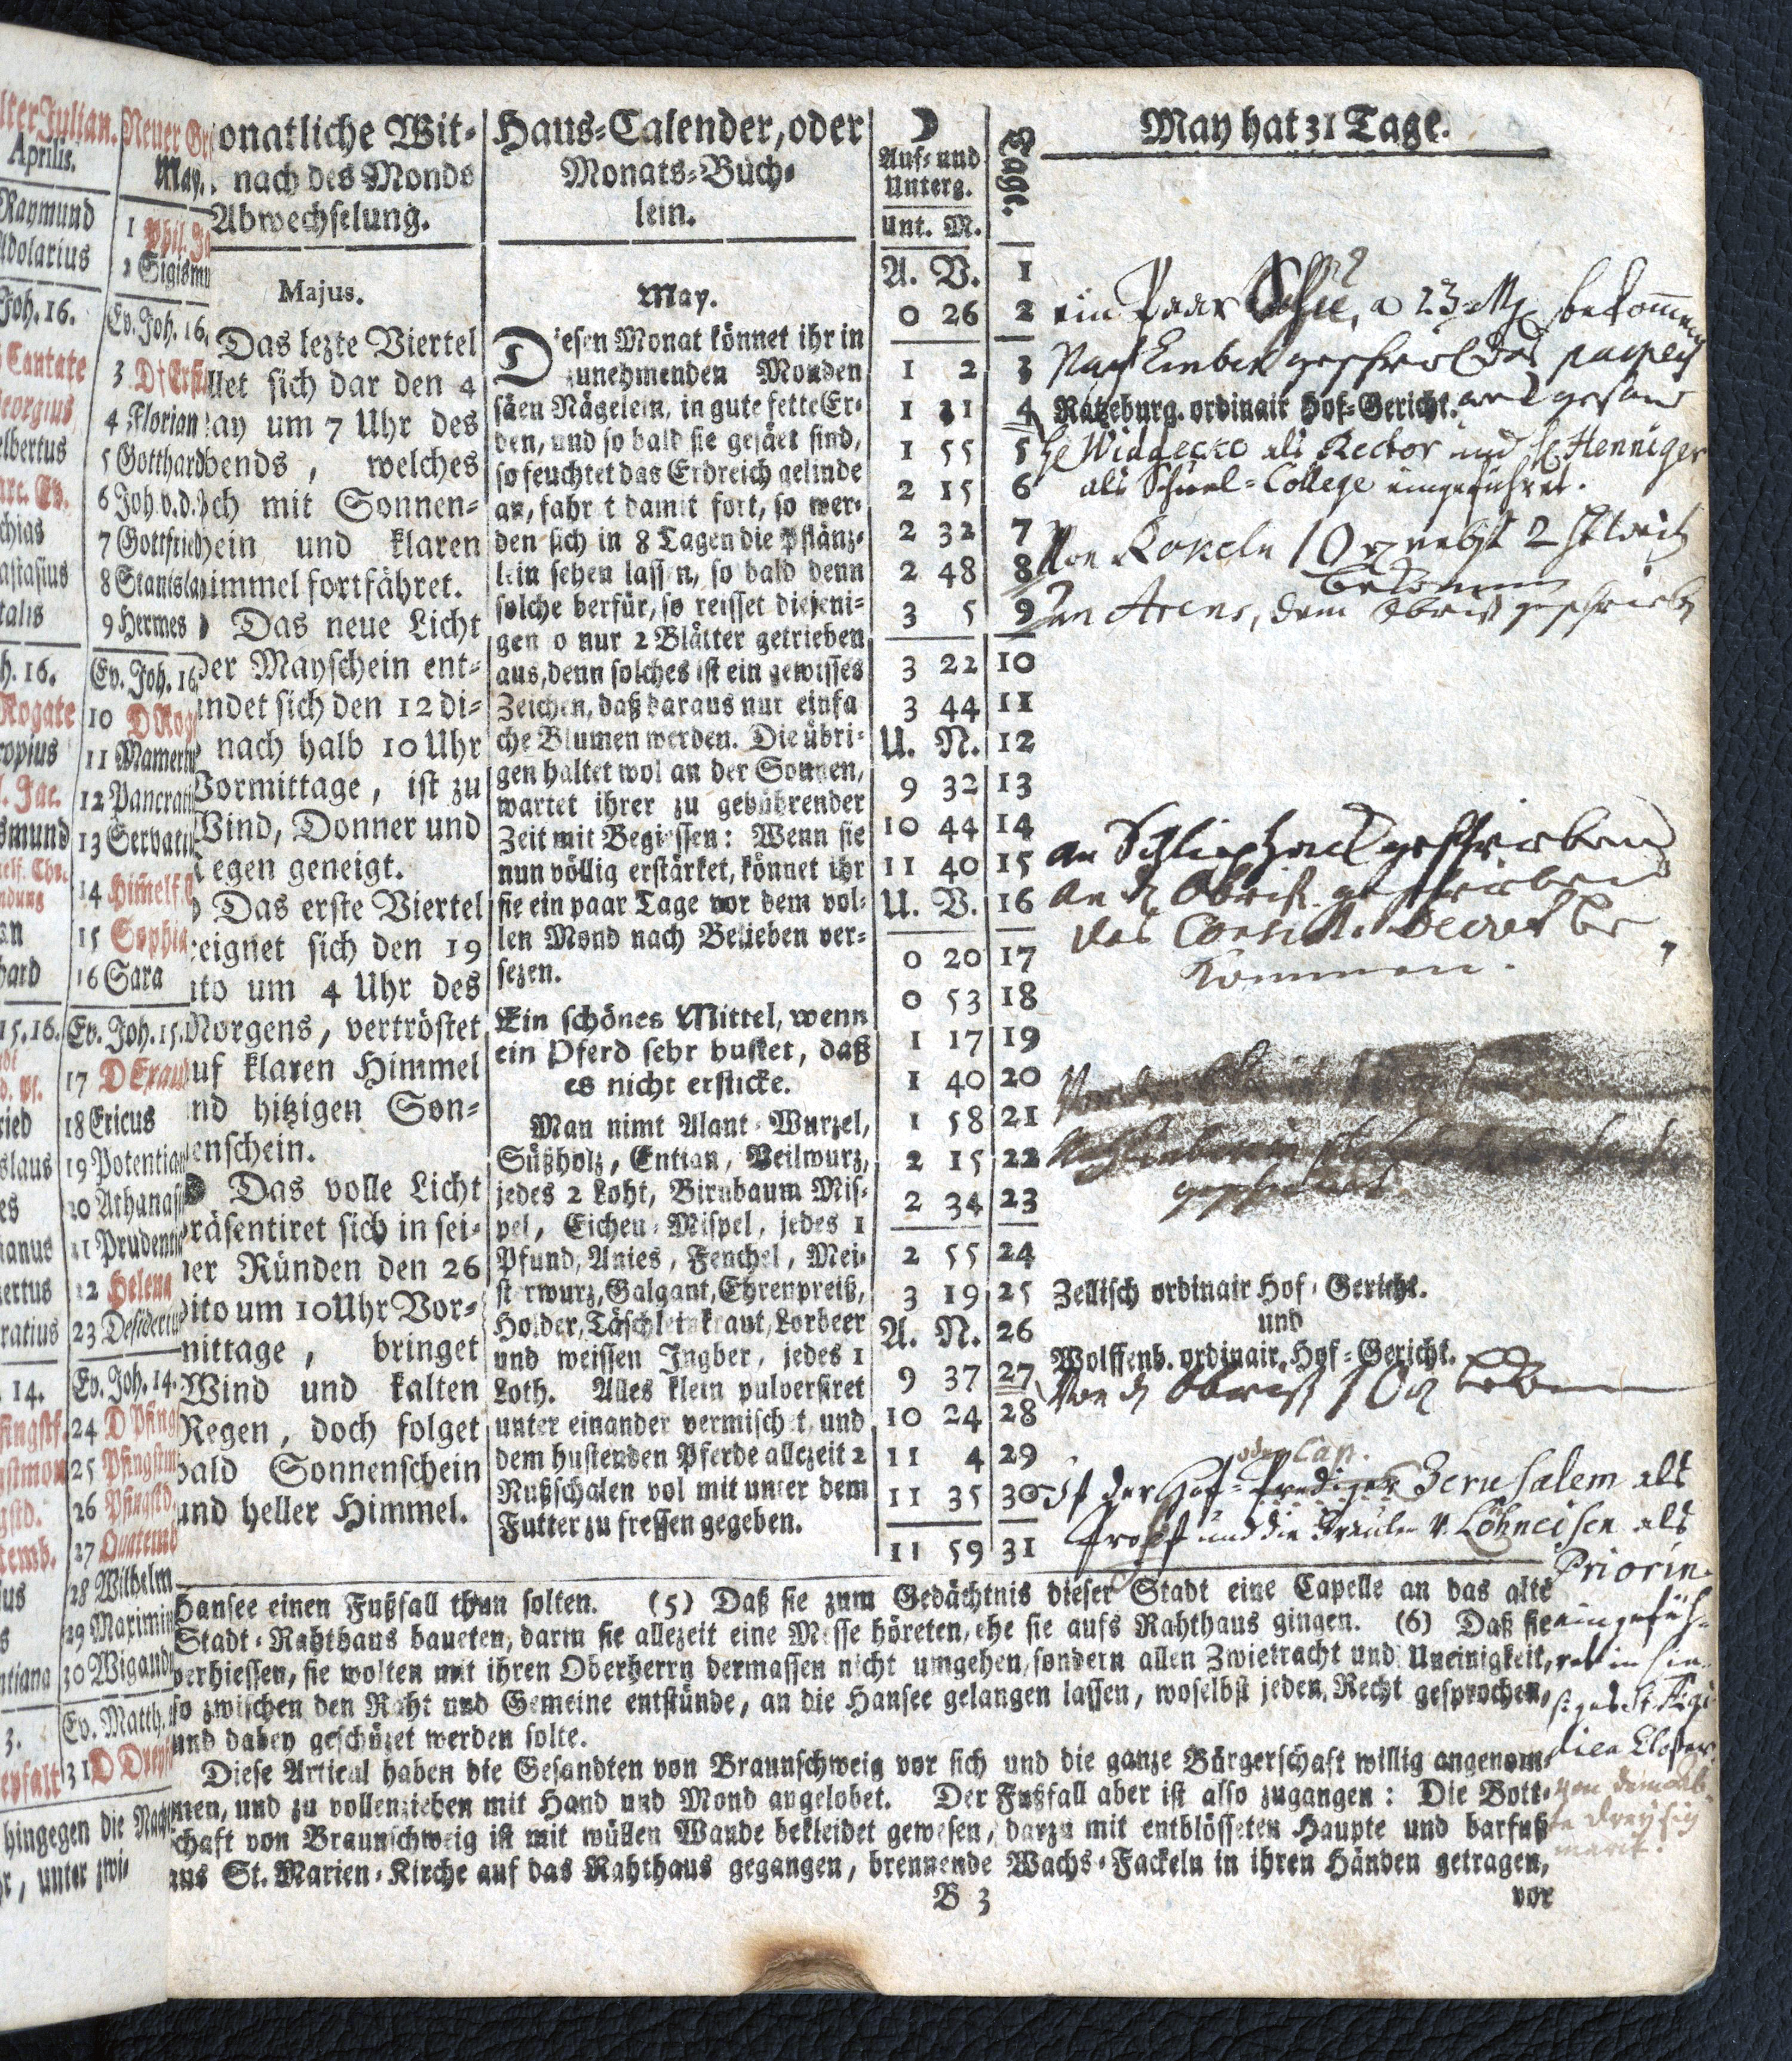 lter Julian.
Aprilis.
Raymund
Adolarius
Joh. 16.
Cantate
Georgius
Neuer Gr
May.
1 Phil. Ja
2 Sigismu
Ev. Joh. 16.
4 Florian
5 Gotthard
6 Joh. v. d.
7 Gottfried
8 Stanisla
9 Hermes
Ev. Joh. 16
10 D Rog
11 Mamertu
12 Pancrati
13 Servati
14 Himelf.
15 Sophia
16 Sara
Ev. Joh. 15.
17 D Exau
18 Ericus
19 Potentia
20 Athanas
21 Prudenti
22 Helena
23 Desideriu
Ev. Joh. 14.
24 D Pfing
25 Pfingstm
26 Pfingstd.
27 Quatemb
28 Wilhelm
29 Maximin
30 Wigand
Ev. Matth.
31 D Dreyf
hingegen die Nach
r, unter zwi-
onatliche Wit-
nach des Monds
Abwechselung.
Majus.
Das lezte Viertel
llet sich dar den 4
ay um 7 Uhr des
bends, welches
ch mit Sonnen-
hein und klaren
immel fortfähret.
Das neue Licht
der Mayschein ent-
ndet sich den 12 di-
nach halb 10 Uhr
Vormittage, ist zu
Wind, Donner und
Regen geneigt.
Das erste Viertel
eignet sich den 19
ito um 4 Uhr des
Morgens, vertröstet
auf klaren Himmel
nd hitzigen Son-
enschein.
Das volle Licht
präsentiret sich in sei-
ner Ründen den 26
dito um 10 Uhr Vor-
mittage, bringet
Wind und kalten
Regen, doch folget
bald Sonnenschein
und heller Himmel.
Haus-Calender, oder
Monats-Büch-
lein.
May.
Diesen Monat könnet ihr in
zunehmenden Monden
säen Nägelein, in gute fette Er-
den, und so bald sie gesäet sind,
so feuchtet das Erdreich gelinde
an, fahr t damit fort, so wer-
den sich in 8 Tagen die Pflänz-
lein sehen lassen, so bald denn
solche herfür, so reisset diejeni-
gen o nur 2 Blätter getrieben
aus, denn solches ist ein gewisses
Zeichen, daß daraus nur einfa
che Blumen werden. Die übri-
gen haltet wol an der Sonnen,
wartet ihrer zu gebührender
Zeit mit Begiessen: Wenn sie
nun völlig erstärket, könnet ihr
sie ein paar Tage vor dem vol-
len Mond nach Belieben ver-
sezen.
Ein schönes Mittel, wenn
ein Pferd sehr hustet, daß
es nicht ersticke.
Man nimt Alant-Wurzel,
Süßholz, Entian, Veilwurz,
jedes 2 Loht, Birnbaum Mis-
pel, Eichen-Mispel, jedes 1
Pfund, Anies, Fenchel, Mei-
sterwurz, Galgant, Ehrenpreiß,
Holder, Täschleinkraut, Lorbeer
und weissen Ingber, jedes 1
Loth. Alles klein pulverisiret
unter einander vermischet, und
dem hustenden Pferde allezeit 2
Nußschalen vol mit unter dem
Futter zu fressen gegeben.
☽
Auf- und
Unterg.
Unt. M.
A. V.
0 26
1 2
1 31
1 55
2 15
2 32
2 48
3 5
3 22
3 44
U. N.
9 32
10 44
11 40
U. V.
0 20
0 53
1 17
1 40
1 58
2 15
2 34
2 55
3 19
A. N.
9 37
10 24
11 4
11 35
11 59
Tage.
1
2
3
4
5
6
7
8
9
10
11
12
13
14
15
16
17
18
19
20
21
22
23
24
25
26
27
28
29
30
31
May hat 31 Tage.
ein Paar Schu, a 23 Mg bekommen
Nach Einbek geschrieben
Ratzeburg. ordinair Hof-Gericht.
H Widdecke als Rector und H Henniger
als Schuel-College eingeführet.
Von Rokeln 10 nebst 2
bekommen
an Arens, dem Obrist geschrieben
an Schliephack geschrieben
an d Obrist. geschrieben
das Consist. Decret be
kommen.
Zellisch ordinair Hof-Gericht.
und
Wolffenb. ordinair. Hof-Gericht.
Von d Obrist 10
oder Cap.
Ist der Hof-Prediger Jerusalem als
Probst und die Fräulen v. Löhneisen als
Priorin
eingefüh-
ret in hie-
siges St. Ægi-
dien Closter.
von dem Ab-
Hansee einen Fußfall thun solten. (5) Daß sie zum Gedächtnis dieser Stadt eine Capelle an das alte
Stadt-Rahthaus baueten, darin sie allezeit eine Messe höreten, ehe sie aufs Rahthaus gingen. (6) Daß sie
verhiessen, sie wolten mit ihren Oberherrn dermassen nicht umgehen, sondern allen Zwietracht und Uneinigkeit,
so zwischen den Raht und Gemeine entstünde, an die Hansee gelangen lassen, woselbst jeden Recht gesprochen,
und dabey geschüzet werden solte.
Diese Articul haben die Gesandten von Braunschweig vor sich und die ganze Bürgerschaft willig angenom-
men, und zu vollenziehen mit Hand und Mond angelobet. Der Fußfall aber ist also zugangen: Die Bott-
schaft von Braunschweig ist mit wüllen Wande bekleidet gewesen, darzu mit entblösseten Haupte und barfuß
aus St. Marien-Kirche auf das Rahthaus gegangen, brennende Wachs-Fackeln in ihren Händen getragen,
B 3
vor